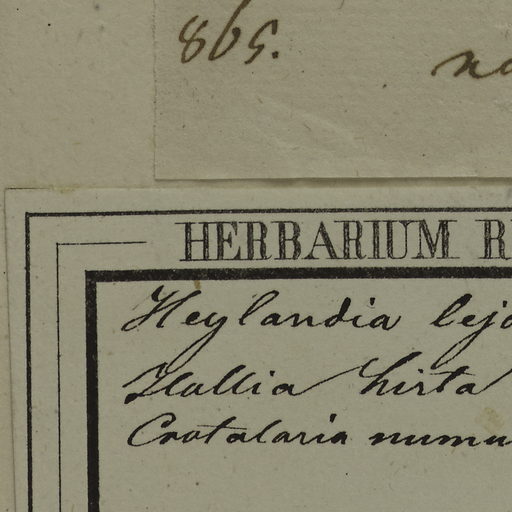 865.
HERBARIUM
Heylandia
Hallia hirta
Crotalaria